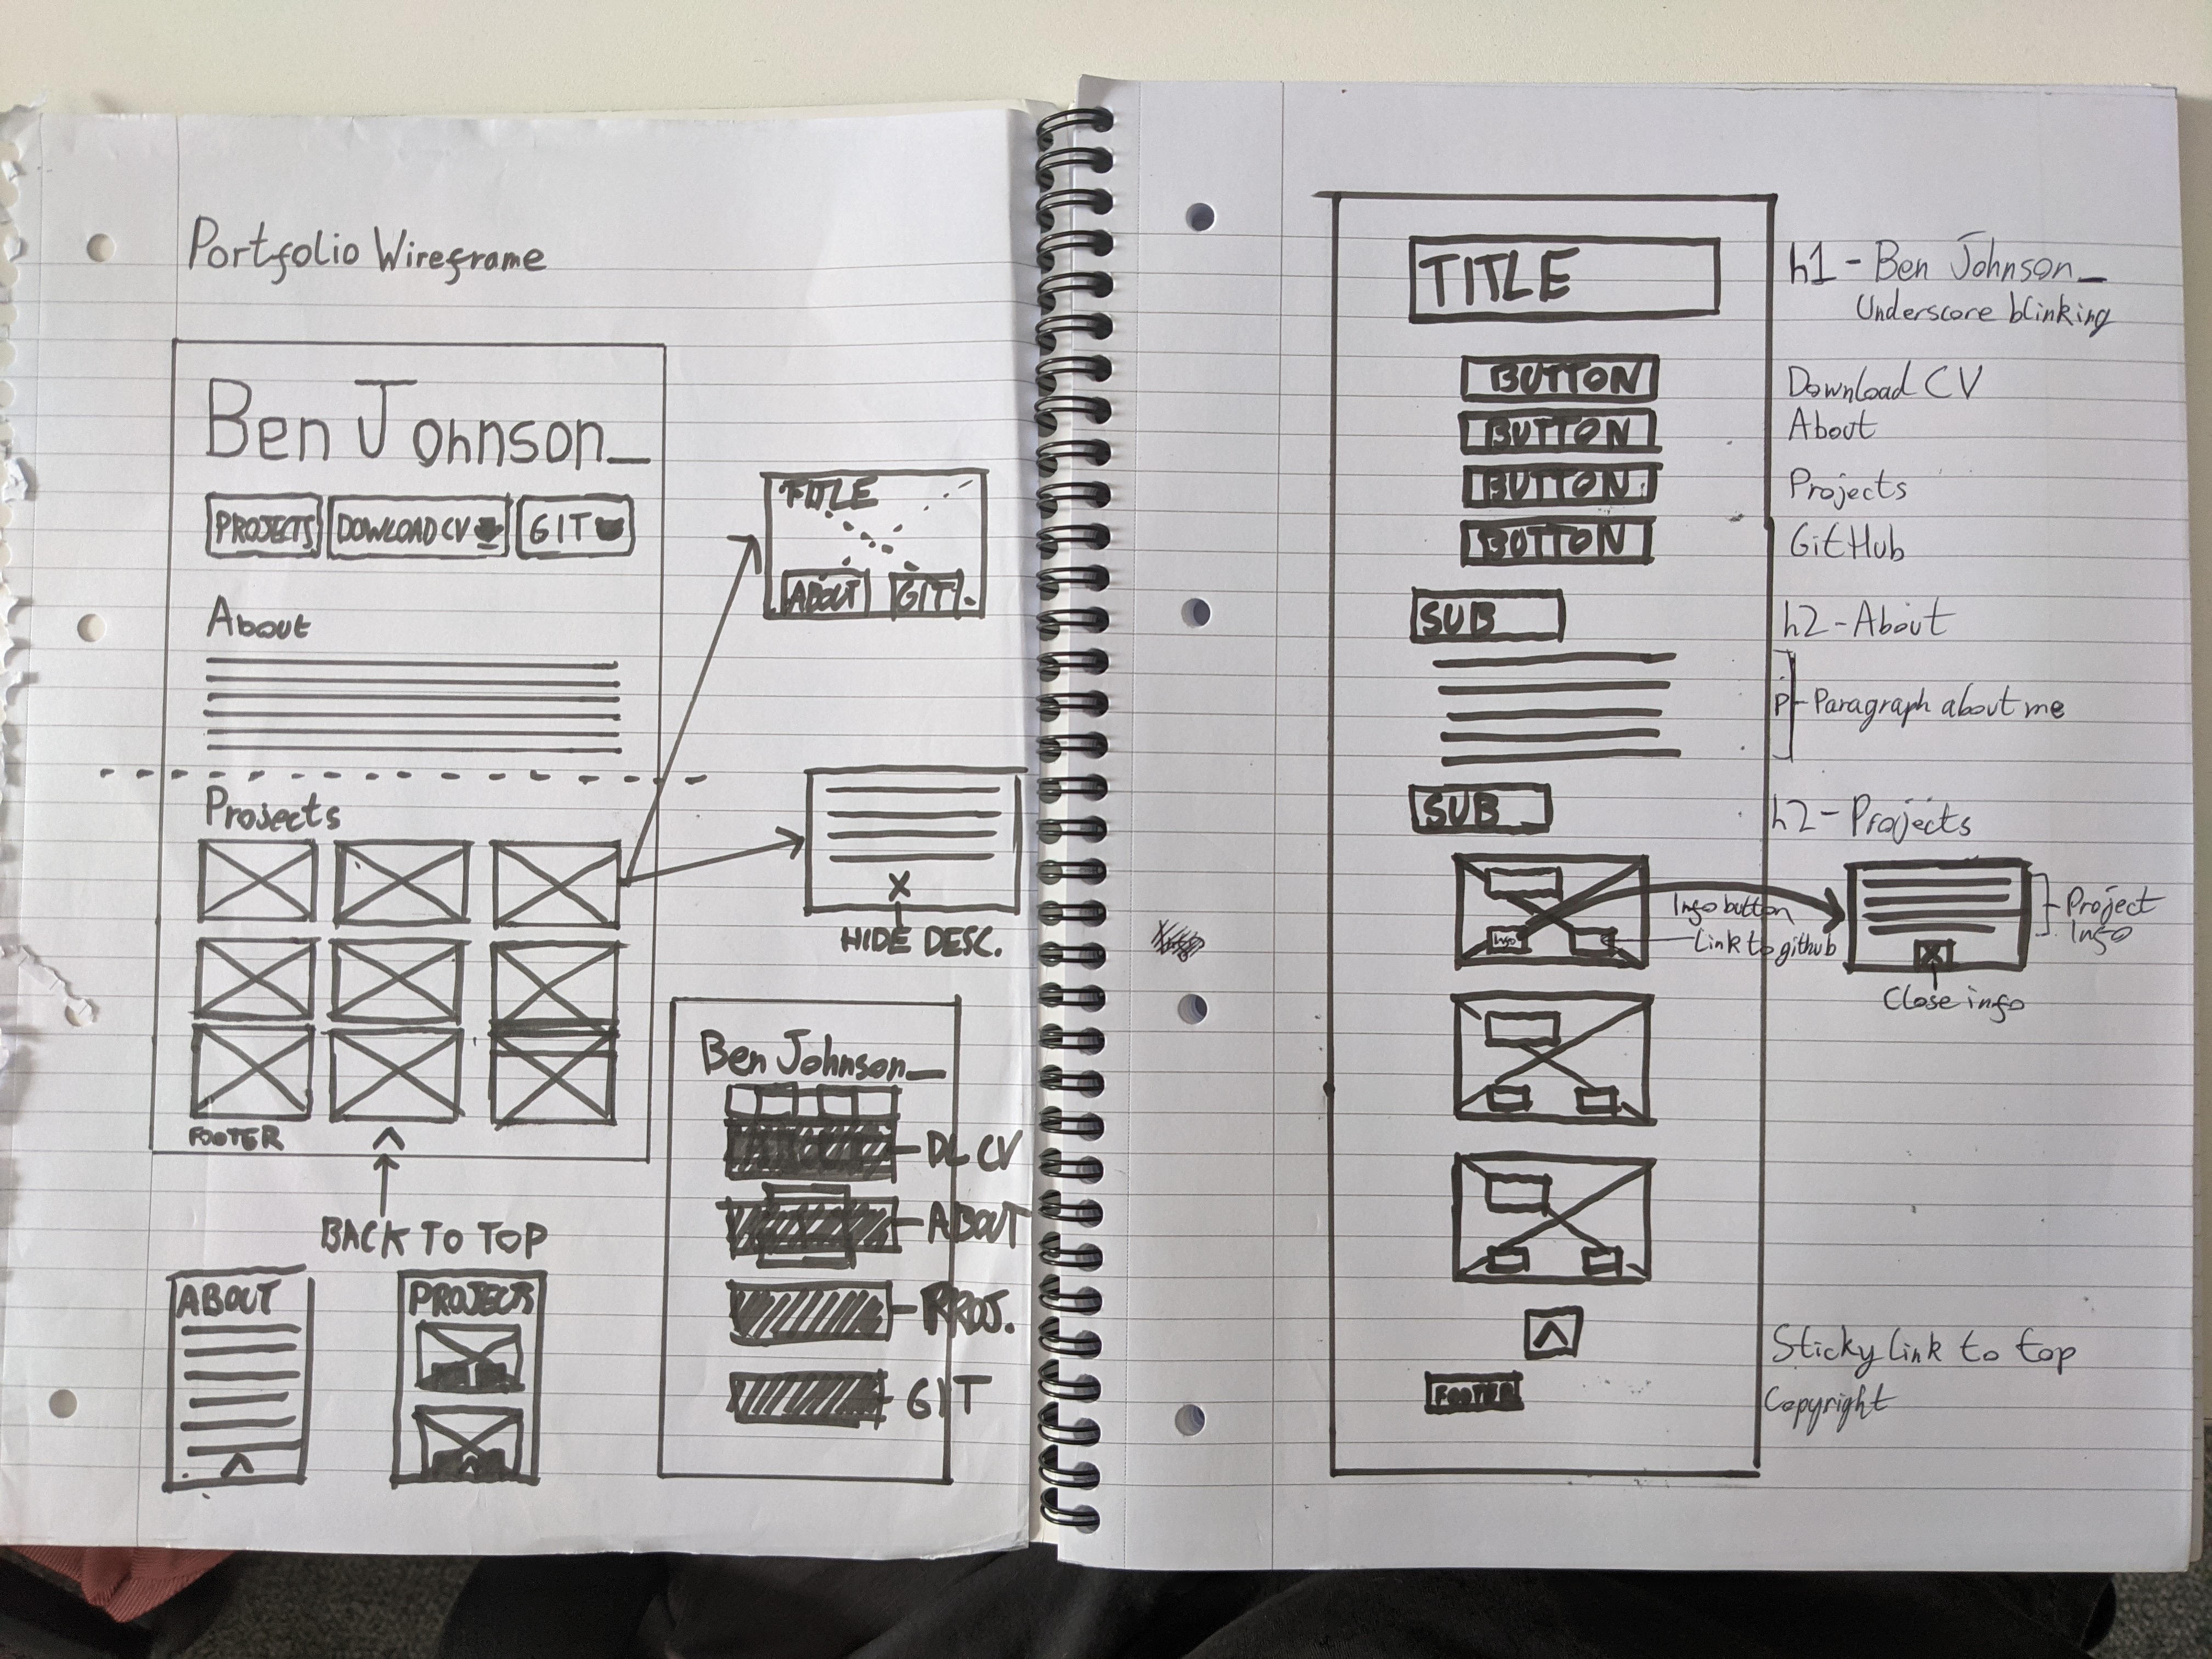 Portfolio Wireframe
Ben Johnson_
PROJECTS
DOWLOAD CV
GIT
About
Projects
FOOTER
BACK TO TOP
TITLE
ABOUT
GIT
X
HIDE DESC.
Ben Johnson_
DL CV
ABOUT
PROJ.
GIT
ABOUT
PROJECTS
TITLE
h1 - Ben Johnson_
Underscore blinking
BUTTON
Download CV
BUTTON
About
BUTTON
Projects
BUTTON
GitHub
SUB
h2 - About
P
Paragraph about me
SUB
h2 - Projects
Info
Info button
Link to github
Project
Info
X
Close info
Sticky link to top
FOOTER
Copyright